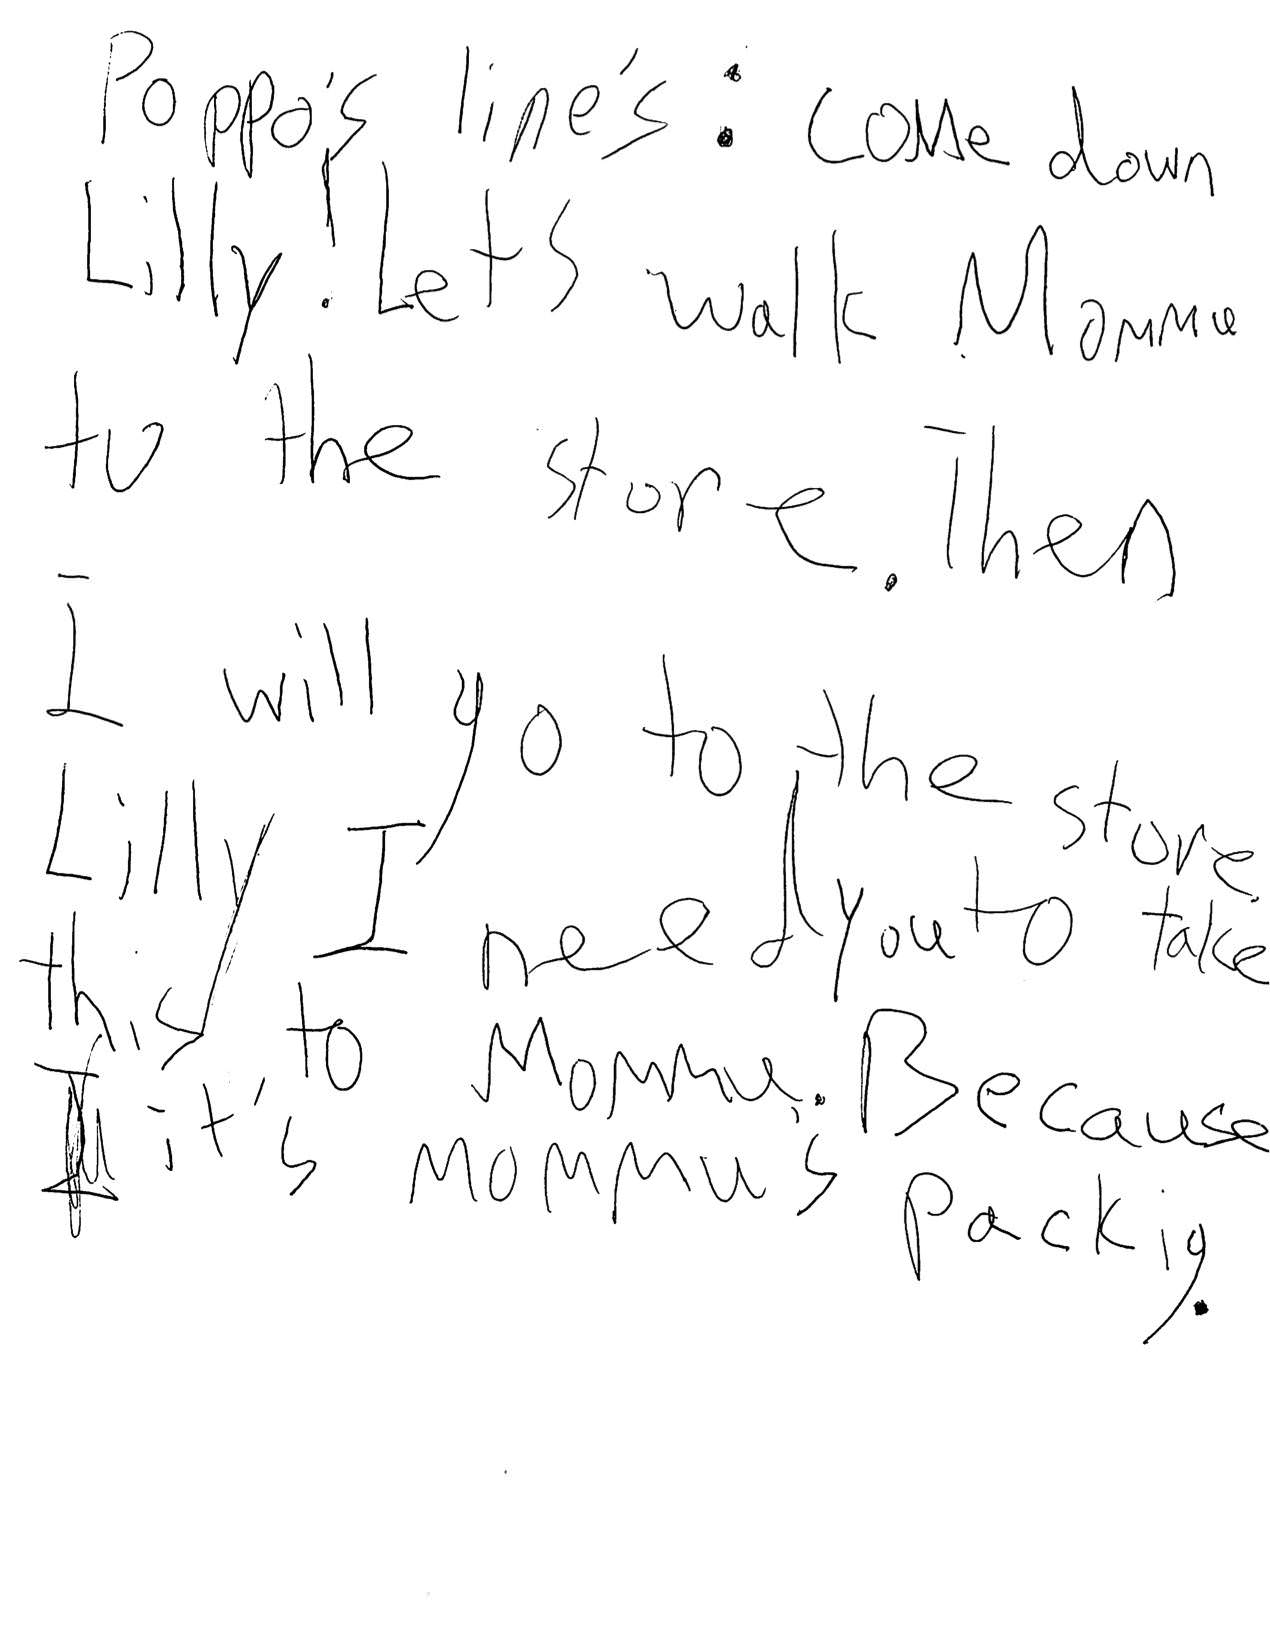 Poppo's line's: come down
Lilly! Let's walk Mommu
to the store. Then
I will go to the store.
Lilly I need you to take
this to Mommu. Because
it's mommu's packig.